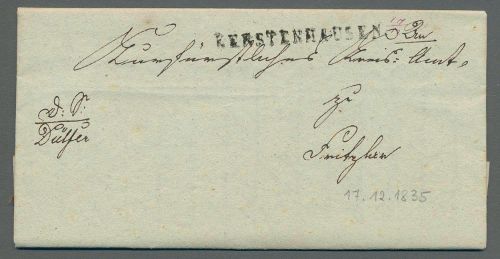 KERSTENHAUSEN An
Kurfürstliches Kreis-Amt
zu
Fritzlar
d. S.
Dülfer
17.12.1835